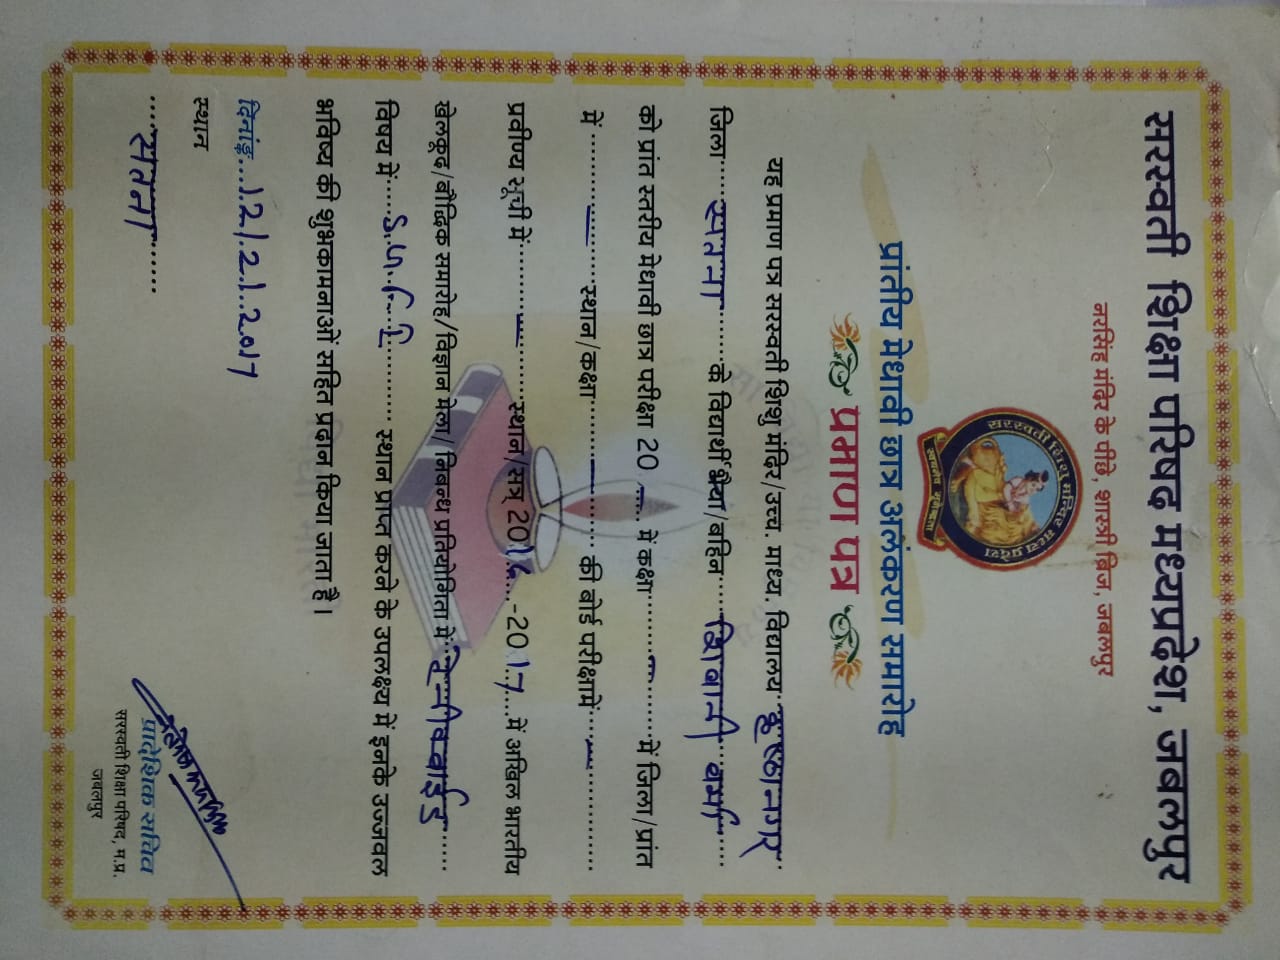 सरस्वती शिक्षा परिषद मध्यप्रदेश, जबलपुर
नरसिंह मंदिर के पीछे, शास्त्री ब्रिज, जबलपुर
सरस्वती शिशु मन्दिर मध्य प्रदेश
प्रांतीय मेधावी छात्र अलंकरण समारोह
प्रमाण पत्र
यह प्रमाण पत्र सरस्वती शिशु मंदिर/उच्च. माध्य. विद्यालय कृष्णनगर
जिला.....सतना.......के विद्यार्थी भैया/बहिन.....शिवानी वर्मा....
को प्रांत स्तरीय मेधावी छात्र परीक्षा 20 —.... में कक्षा..........—..........में जिला/प्रांत
में ..........—..........स्थान/कक्षा..........—.......... की बोर्ड परीक्षामें.....—............
प्रवीण्य सूची में..........—.........स्थान/सत्र 2016.... -2017....में अखिल भारतीय
खेलकूद/बौद्धिक समारोह/विज्ञान मेला/ निबन्ध प्रतियोगिता में
विषय में.... स्थान प्राप्त करने के उपलक्ष्य में इनके उज्जवल
भविष्य की शुभकामनाओं सहित प्रदान किया जाता है।
दिनांक....12/2/2017
स्थान
....सतना......
प्रादेशिक सचिव
सरस्वती शिक्षा परिषद, म.प्र.
जबलपुर